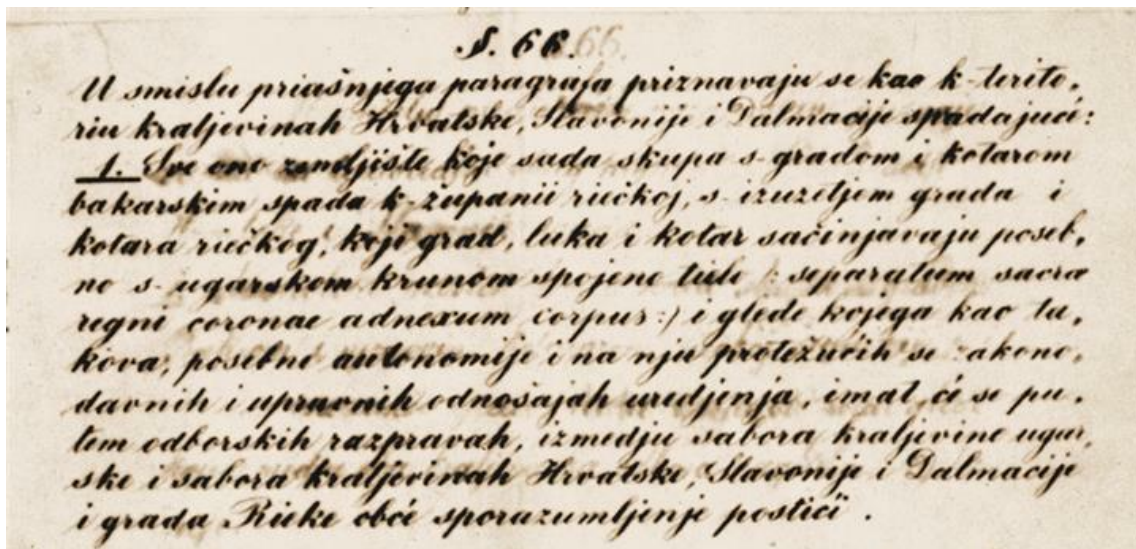 §. 66.
U smislu priašnjega paragrafa priznavaju se kao k-terito,
riu kraljevinah Hrvatske, Slavonije i Dalmacije spadajući:
1. Sve ono zemljište koje sada skupa s-gradom i kotarom
bakarskim spada k-županii riečkoj, s-izuzetjem grada i
kotara riečkog, koji grad, luka i kotar sačinjavaju poseb,
no s-ugarskom krunom spojeno tielo /: separatum sacra
regni coronae adnexum corpus:/ i glede kojega kao ta,
kova, posebne autonomije i na nju protežućih se zakono,
davnih i upravnih odnošajah uredjenja, imat će se pu,
tem odborskih razpravah, izmedju sabora kraljevine ugar,
ske i sabora kraljevinah Hrvatske, Slavonije i Dalmacije
i grada Rieke obće sporazumljenje postići.